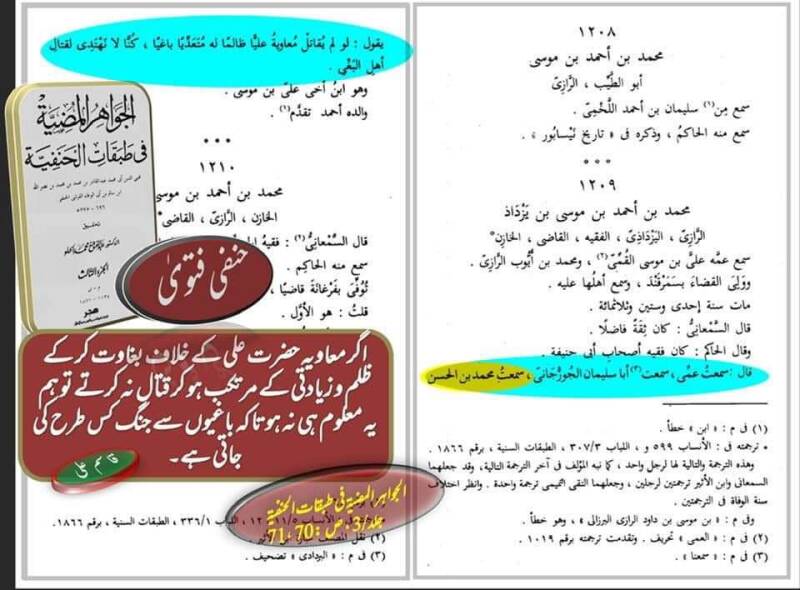 ١٢٠٨
محمد بن أحمد بن موسى
أبو الطَّيِّب ، الرَّازِىّ
سمع مِن(١) سليمان بن أحمد اللَّخْمِىّ .
سمع منه الحاكمُ ، وذكره فى « تاريخ نَيْسابُور » .
* * *
١٢٠٩
محمد بن أحمد بن موسى بن يَزْدَادَ
الرَّازِىّ ، اليَزْدَادِىّ ، الفقيه ، القاضى ، الخازن*
سمع عمَّه علىَّ بن موسى القُمِّىّ(٢) ، ومحمد بن أيُّوب الرَّازِىّ .
ووَلِىَ القضاءَ بسَمَرْقَنْدَ ، وسمع أهلُها عليه .
مات سنة إحدى وستين وثلاثمائة .
قال السَّمْعانِىُّ : كان ثِقَةً فاضلًا .
وقال الحاكمُ : كان فقيه أصحابِ أبى حنيفة .
قال : سمعتُ عمِّى ، سمعت(٣) أبا سليمان الجُوزْجَانِىّ ، سمعتُ محمد بن الحسن
(١) فى م : « ابن » خطأ .
* ترجمته فى : الأنساب ٥٩٩ و ، اللباب ٣٠٧/٣ ، الطبقات السنية ، برقم ١٨٦٦ .
وهذه الترجمة والتالية لها لرجل واحد ، كما نبه المؤلف فى آخر الترجمة التالية، وقد جعلهما
السمعانى وابن الأثير ترجمتين لرجلين ، وجعلهما التقى التميمى ترجمة واحدة . وانظر اختلاف
سنة الوفاة فى الترجمتين .
وفى م : « بن موسى بن داود الرازى البرزالى » ، وهو خطأ .
(٢) فى م : « العمى » تحريف . وتقدمت ترجمته برقم ١٠١٩ .
(٣) فى م : « سمعتا » .
يقول : لو لم يُقاتلْ مُعاويةُ عليًّا ظالمًا له مُتَعَدِّيًا باغيًا ، كُنَّا لا نَهْتَدِى لقتالِ
أهلِ البَغْى .
وهو ابنُ أخى علىّ بن موسى .
والده أحمد تقدَّم(١) .
* * *
١٢١٠
محمد بن أحمد بن موسى
الخازن ، الرَّازِىّ ، القاضى
قال السَّمْعانِىُّ(٢) : فقيهُ
سمع منه الحاكِم .
تُوُفِّىَ بفَرْغانَةَ قاضيًا ،
قلتُ : هو الأوَّل .
١١/٥ ، ١٢ ، اللباب ٣٣٦/١ ، الطبقات السنية ، برقم ١٨٦٦ .
(٣) فى م : « اليردادى » تصحيف .
الجواهر المضية
فى طبقات الحنفية
الجزء الثالث
هجر
حنفی فتویٰ
اگر معاویہ حضرت علی کے خلاف بغاوت کر کے
ظلم و زیادتی کے مرتکب ہو کر قتال نہ کرتے تو ہم
یہ معکوم ہی نہ ہوتا کہ باغیوں سے جنگ کس طرح کی
جاتی ہے۔
قاسم علی
الجواہر المضیۃ فی طبقات الحنفیۃ
جلد/3، ص: 70، 71